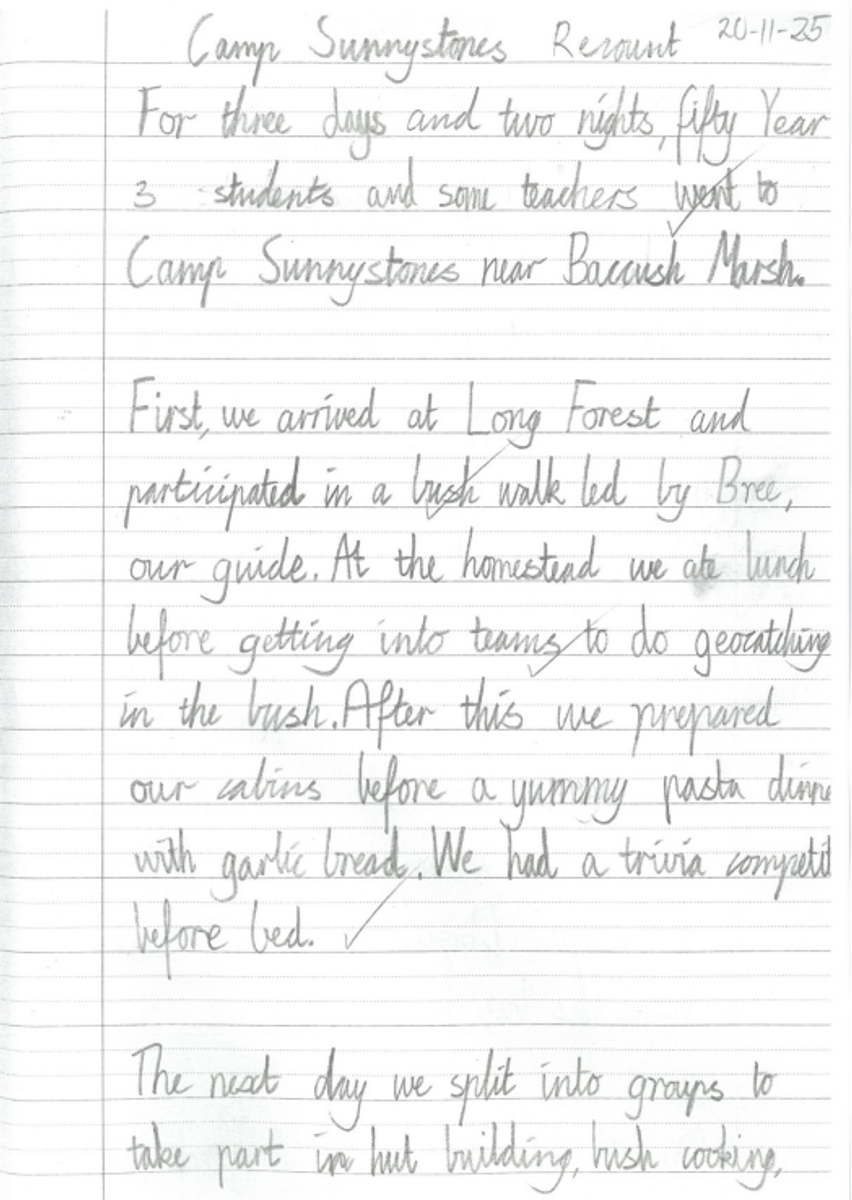 Camp Sunnystones Recount 20-11-25
For three days and two nights, fifty Year
3 students and some teachers went to
Camp Sunnystones near Baccush Marsh.
First, we arrived at Long Forest and
participated in a bush walk led by Bree,
our guide. At the homestead we ate lunch
before getting into teams to do geocatching
in the bush. After this we prepared
our cabins before a yummy pasta dinne
with garlic bread. We had a trivia competit
before bed.
The next day we split into groups to
take part in hut building, bush cooking,